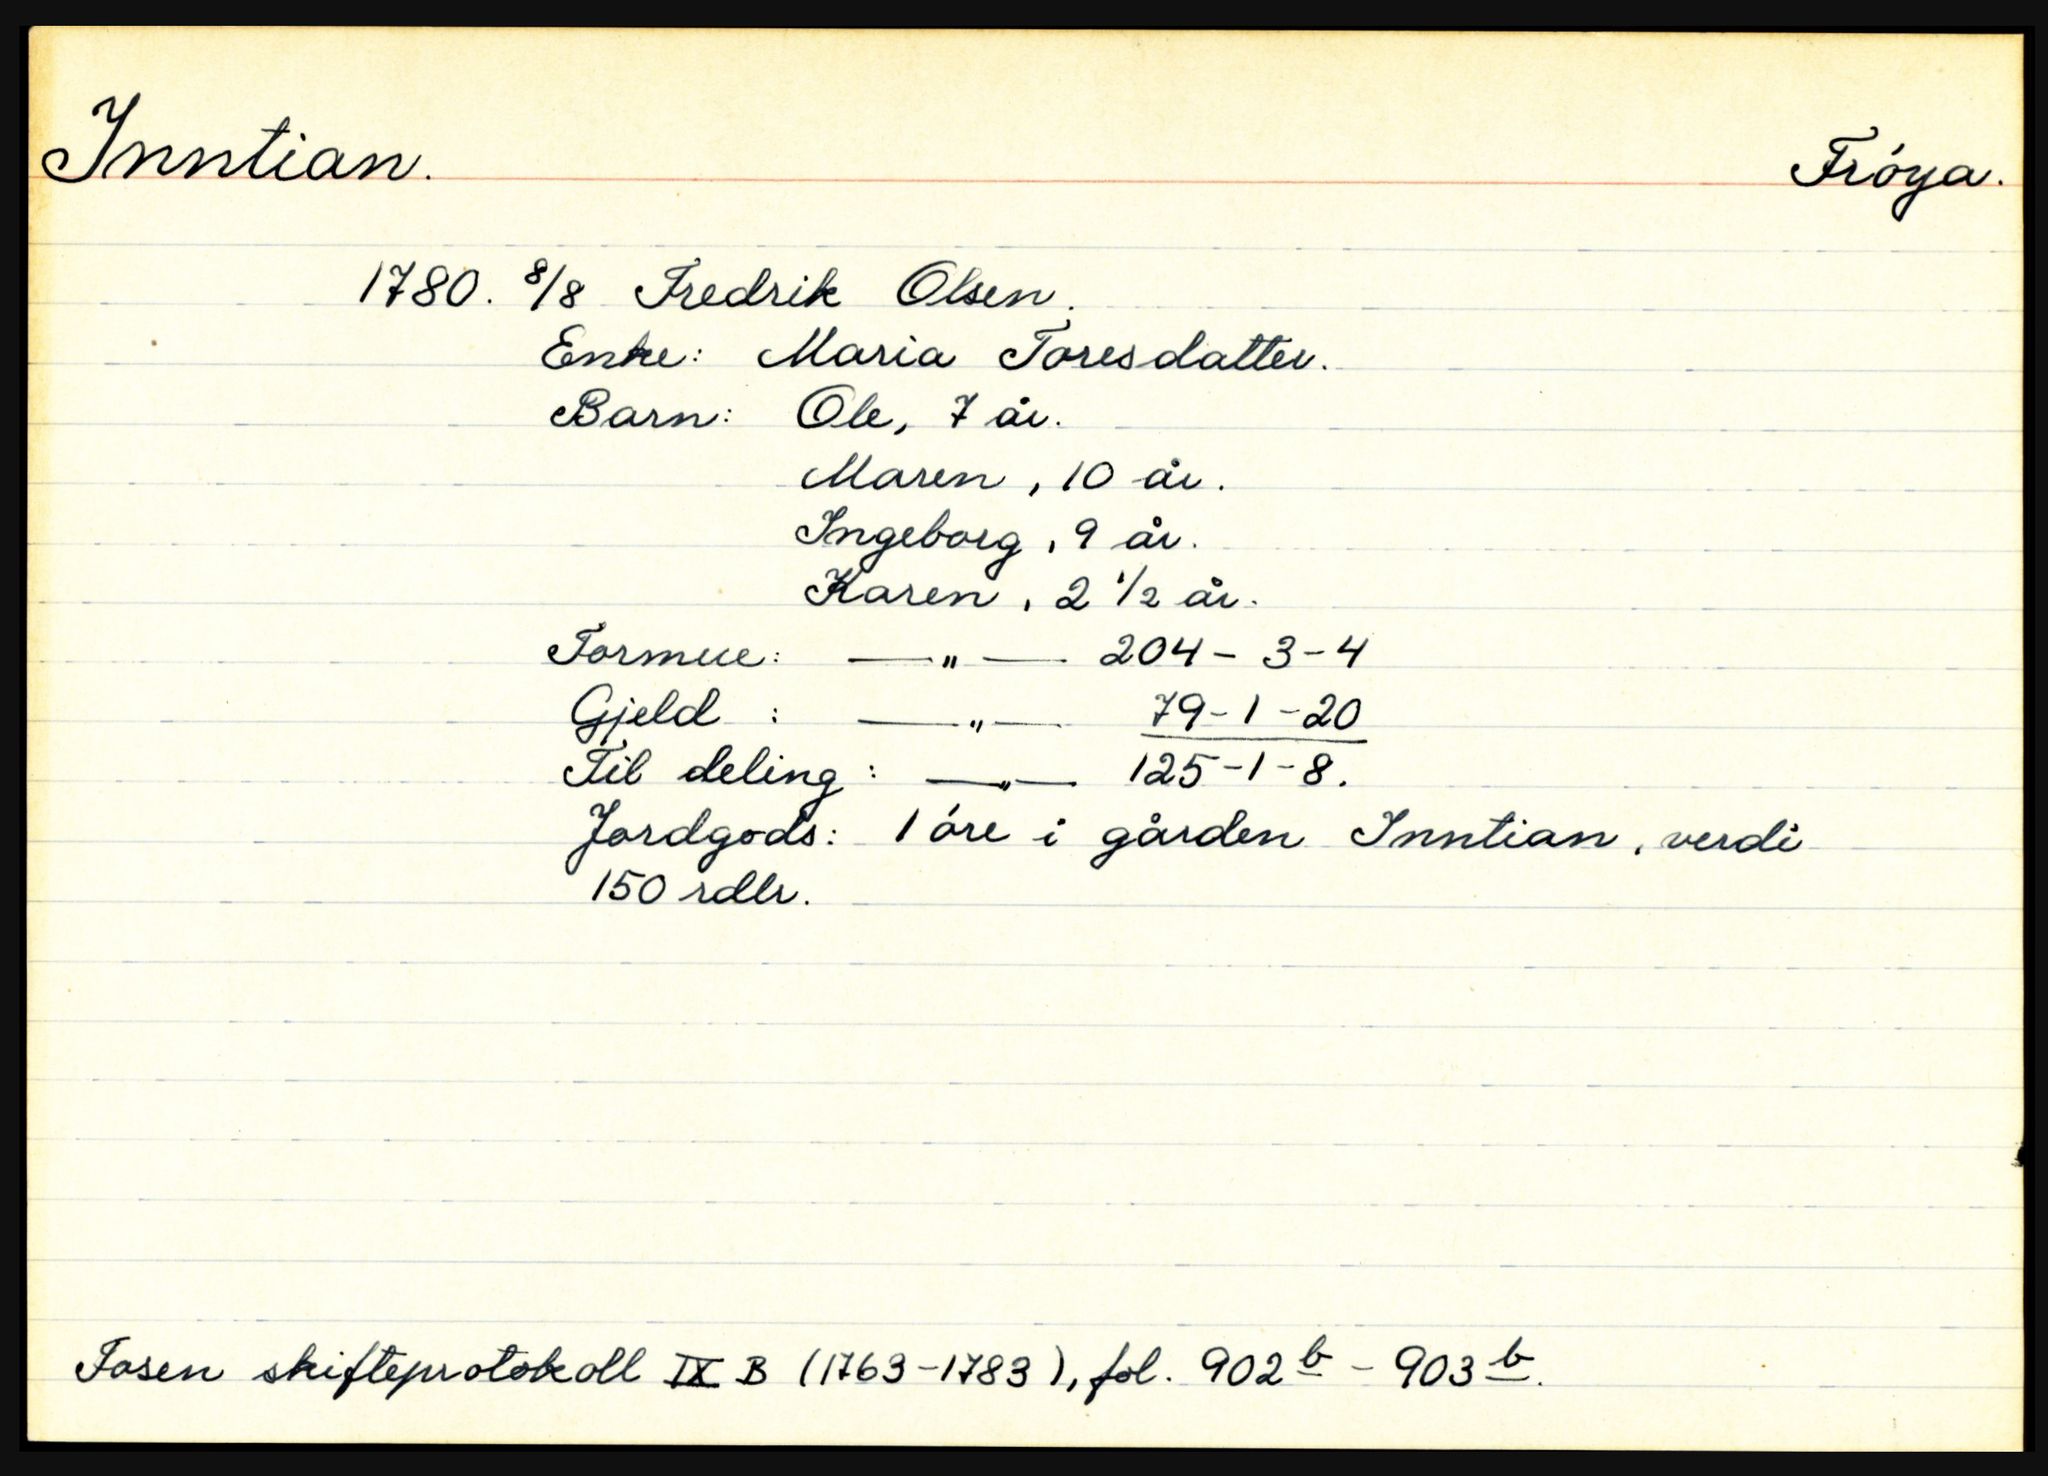 Inntian. Fróya.
1780. 8/8 Fredrik Olsen.
Enke: Maria Toresdatter.
Barn: Ole, 7 år.
Maren, 10 år.
Ingeborg, 9 år.
Karen, 2 1/2 år.
Formue: —„— 204 - 3 - 4
Gjeld : —„— 79 - 1 - 20
Til deling: —„— 125 - 1 - 8.
Jordgods: 1 óre i gården Inntian, verdi
150 rdlr.
Fosen skifteprotokoll IX B (1763-1783), fol. 902 b - 903 b.